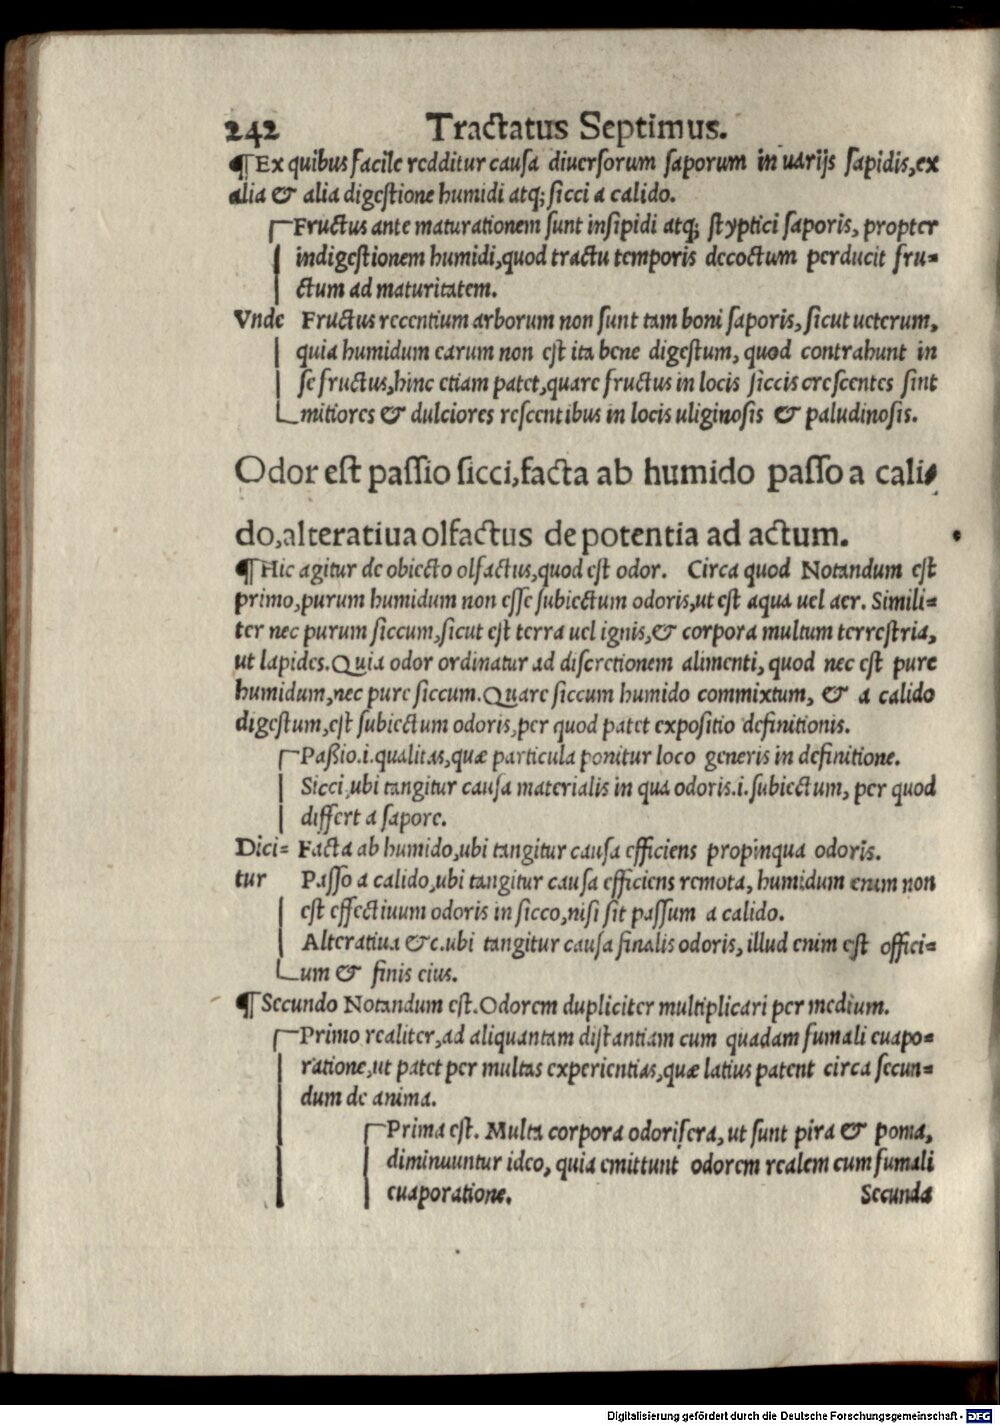 242 Tractatus Septimus.
¶Ex quibus facile redditur causa diuersorum saporum in uarijs sapidis,ex
alia & alia digestione humidi atq; sicci a calido.
Fructus ante maturationem sunt insipidi atq; styptici saporis, propter
indigestionem humidi,quod tractu temporis decoctum perducit fru=
ctum ad maturitatem.
Vnde Fructus recentium arborum non sunt tam boni saporis, sicut ueterum,
quia humidum earum non est ita bene digestum, quod contrahunt in
se fructus,hinc etiam patet,quare fructus in locis siccis crescentes sint
mitiores & dulciores rescentibus in locis uliginosis & paludinosis.
Odor est passio sicci,facta ab humido passo a cali=
do,alteratiua olfactus de potentia ad actum.
¶Hic agitur de obiecto olfactus,quod est odor. Circa quod Notandum est
primo,purum humidum non esse subiectum odoris,ut est aqua uel aer. Simili=
ter nec purum siccum,sicut est terra uel ignis,& corpora multum terrestria,
ut lapides.Quia odor ordinatur ad discretionem alimenti, quod nec est pure
humidum,nec pure siccum.Quare siccum humido commixtum, & a calido
digestum,est subiectum odoris,per quod patet expositio definitionis.
Paßio.i.qualitas,quæ particula ponitur loco generis in definitione.
Sicci,ubi tangitur causa materialis in qua odoris.i.subiectum, per quod
differt a sapore.
Dici= Facta ab humido,ubi tangitur causa efficiens propinqua odoris.
tur Passo a calido,ubi tangitur causa efficiens remota, humidum enim non
est effectiuum odoris in sicco,nisi sit passum a calido.
Alteratiua &c.ubi tangitur causa finalis odoris, illud enim est offici=
um & finis eius.
¶Secundo Notandum est.Odorem dupliciter multiplicari per medium.
Primo realiter,ad aliquantam distantiam cum quadam fumali euapo=
ratione,ut patet per multas experientias,quæ latius patent circa secun=
dum de anima.
Prima est. Multa corpora odorifera, ut sunt pira & poma,
diminuuntur ideo, quia emittunt odorem realem cum fumali
euaporatione. Secunda
Digitalisierung gefördert durch die Deutsche Forschungsgemeinschaft - DFG